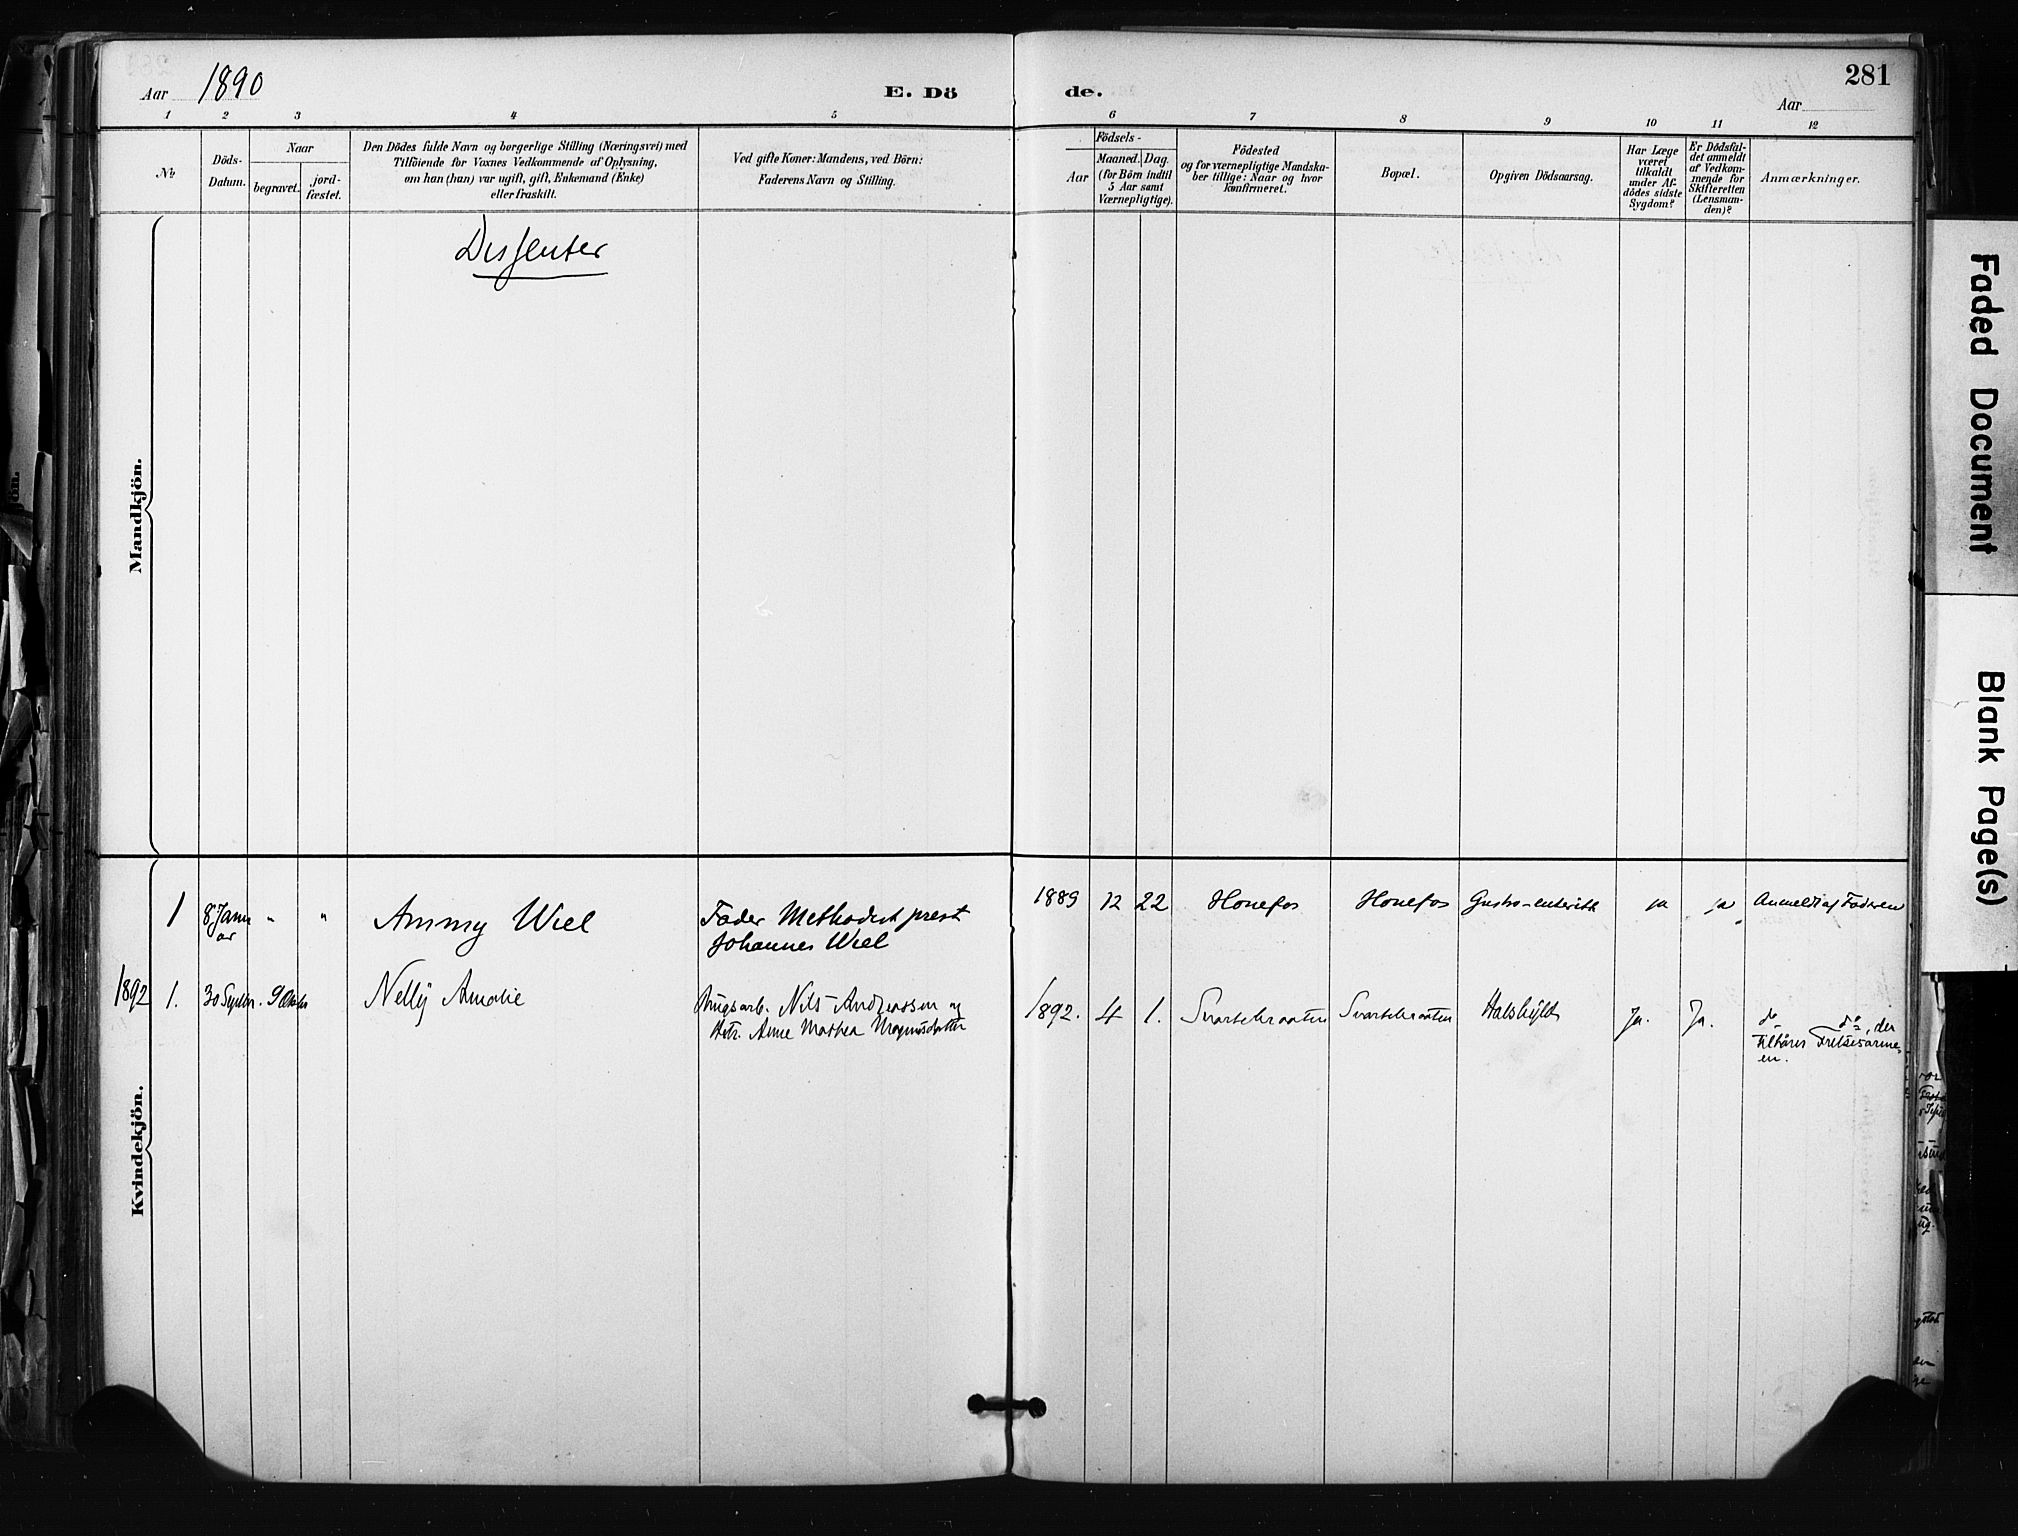 Aar 1890
E. Dö de.
281
Aar
1 2 3 4 5 6 7 8 9 10 11 12
No
Döds-
Datum.
Naar
begravet.
jord-
fæstet.
Den Dödes fulde Navn og borgerlige Stilling (Næringsvei) med
Tilföiende for Voxnes Vedkommende af Oplysning,
om han (hun) var ugift, gift, Enkemand (Enke)
eller fraskilt.
Ved gifte Koner: Mandens, ved Börn:
Faderens Navn og Stilling.
Födsels-
Aar
Maaned. Dag.
(for Börn indtil
5 Aar samt
Værnepligtige).
Födested
og for værnepligtige Mandska-
ber tillige: Naar og hvor
konfirmeret.
Bopæl.
Opgiven Dödsaarsag.
Har Læge
været
tilkaldt
under Af-
dödes sidste
Sygdom?
Er Dödsfal-
det anmeldt
af Vedkom-
mende for
Skifteretten
(Lensman-
den)?
Anmærkninger.
Mandkjön.
Dissenter
Kvindekjön.
1 8 Janu " " Ammy Wiel Fader Methodist prest 1889 12 22 Honefos Honefos ja ja Anmeldt af Faderen
ar Johannes Wiel
1892 1. 30 Septbr. 9 Oktbr Nelly Amalie Brugsarb. Nils Andreassen og 1892. 4 1. Ja. Ja. do do, der
Hstr. Anne Mathea Magnusdatter tilhører Frelsesarme-
en.
Faded Document
Blank Page(s)